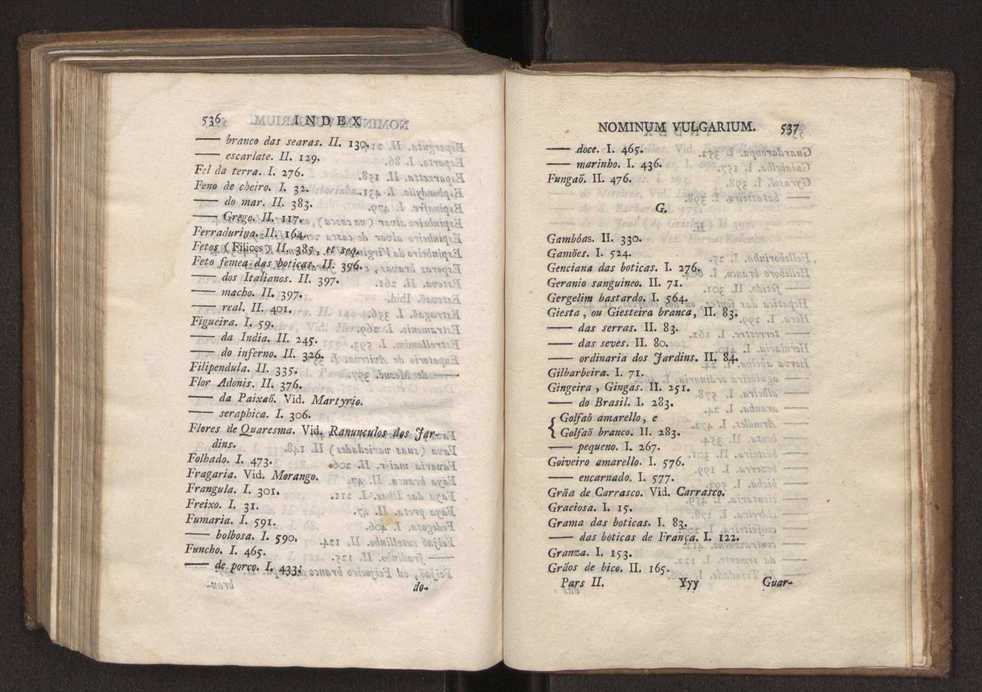 536 INDEX
—— branco das searas. II. 130.
—— escarlate. II. 129.
Fel da terra. I. 276.
Feno de cheiro. I. 32.
—— do mar. II. 383.
—— Grego. II. 117.
Ferradurina. II. 164.
Fetos (Filices) II. 385, et seq.
Feto femea das boticas. II. 396.
—— dos Italianos. II. 397.
—— macho. II. 397.
—— real. II. 401.
Figueira. I. 59.
—— da India. II. 245.
—— do inferno. II. 326.
Filipendula. II. 335.
Flor Adonis. II. 376.
—— da Paixaõ. Vid. Martyrio.
—— seraphica. I. 306.
Flores de Quaresma. Vid. Ranunculos dos Jar-
dins.
Folhado. I. 473.
Fragaria. Vid. Morango.
Frangula. I. 301.
Freixo. I. 31.
Fumaria. I. 591.
—— bolbosa. I. 590.
Funcho. I. 465.
—— de porco. I. 433.
do-
NOMINUM VULGARIUM. 537
—— doce. I. 465.
—— marinho. I. 436.
Fungaõ. II. 476.
G.
Gambôas. II. 330.
Gamões. I. 524.
Genciana das boticas. I. 276.
Geranio sanguineo. II. 71.
Gergelim bastardo. I. 564.
Giesta, ou Giesteira branca, II. 83.
—— das serras. II. 83.
—— das seves. II. 80.
—— ordinaria dos Jardins. II. 84.
Gilbarbeira. I. 71.
Gingeira, Gingas. II. 251.
—— do Brasil. I. 283.
{ Golfaõ amarello, e
{ Golfaõ branco. II. 283.
—— pequeno. I. 267.
Goiveiro amarello. I. 576.
—— encarnado. I. 577.
Grãa de Carrasco. Vid. Carrasco.
Graciosa. I. 15.
Grama das boticas. I. 83.
—— das boticas de França. I. 122.
Granza. I. 153.
Grãos de bico. II. 165.
Pars II. Yyy Guar-